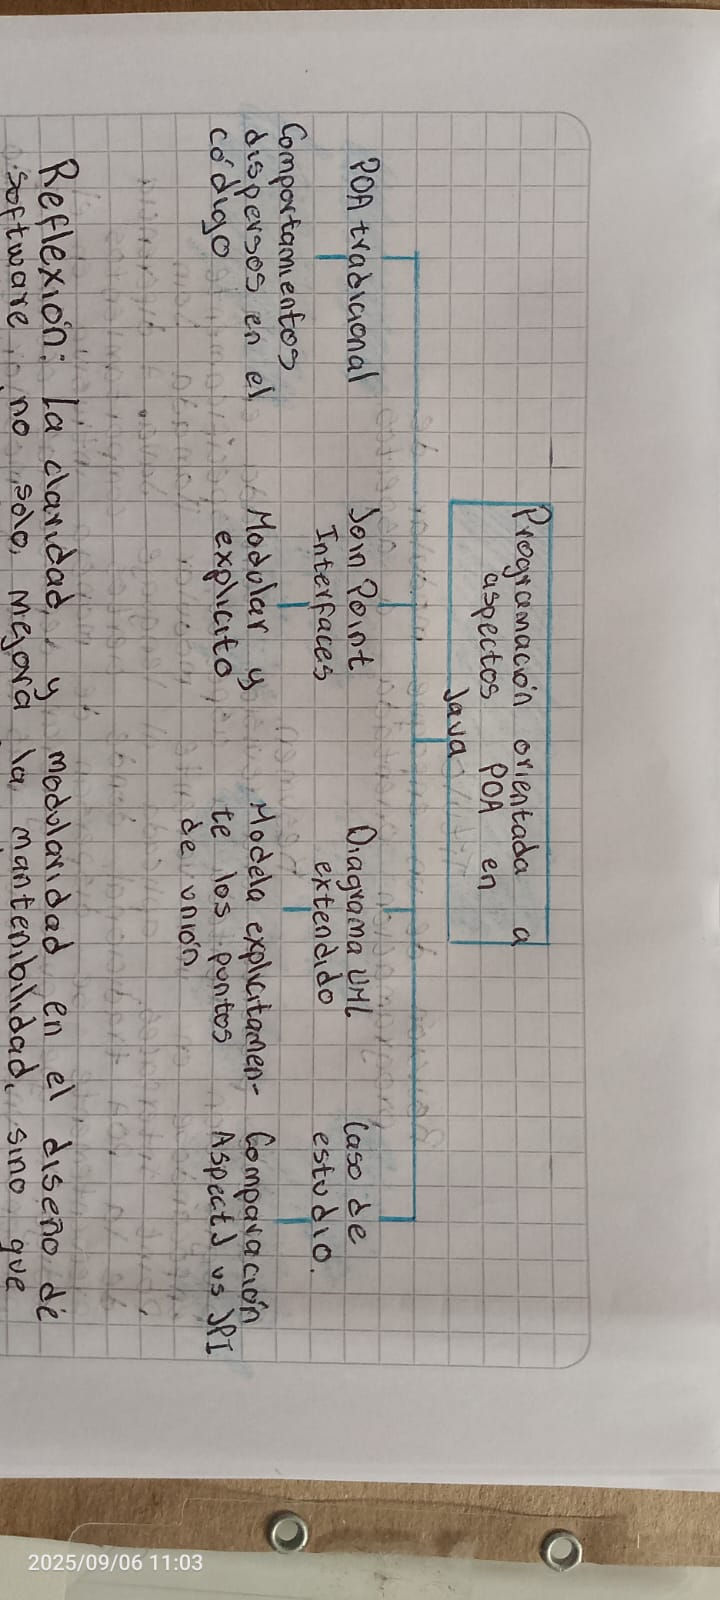 Programación orientada a
aspectos POA en
Java
POA tradicional
Comportamientos
dispersos en el
código
Join Point
Interfaces
Modular y
explicito
Diagrama UML
extendido
Modela explicitamen-
te los puntos
de unión
Caso de
estudio.
Comparación
AspectJ vs JPI
Reflexión: la claridad y modularidad en el diseño de
software no solo mejora la mantenibilidad, sino que
2025/09/06 11:03